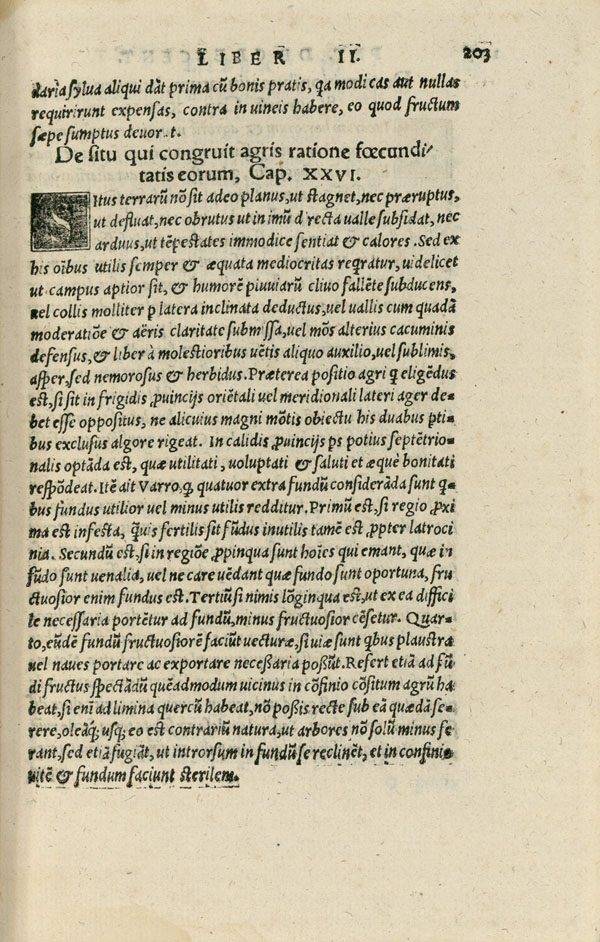 LIBER II. 203
daria sylua aliqui dāt prima cū bonis pratis, qa modicas aut nullas
requirirunt expensas, contra in uineis habere, eo quod fructum
sæpe sumptus deuor t.
De situ qui congruit agris ratione fœcundi-
tatis eorum, Cap. XXVI.
Situs terrarū nō sit adeo planus, ut stagnet, nec præruptus,
ut defluat, nec obrutus ut in imū d recta ualle subsidat, nec
arduus, ut tēpestates immodice sentiat & calores. Sed ex
his oībus utilis semper & æquata mediocritas reqratur, uidelicet
ut campus aptior sit, & humorē pluuiarū cliuo fallēte subducens,
uel collis molliter p latera inclinata deductus, uel uallis cum quadā
moderatiōe & aëris claritate submissa, uel mōs alterius cacuminis
defensus, & liber à molestioribus uētis aliquo auxilio, uel sublimis,
asper, sed nemorosus & herbidus. Præterea positio agri q̄ eligēdus
est, si sit in frigidis ꝓuincijs oriētali uel meridionali lateri ager de-
bet esse oppositus, ne alicuius magni mōtis obiectu his duabus ptī-
bus exclusus algore rigeat. In calidis ꝓuincijs ps potius septētrio-
nalis optāda est, quæ utilitati, uoluptati & saluti et æquè bonitati
respōdeat. Itē ait Varro, q̣, quatuor extra fundū considerāda sunt q̄-
bus fundus utilior uel minus utilis redditur. Primū est, si regio ꝓxi
ma est infesta, q̄uis fertilis sit fūdus inutilis tamē est ꝓpter latroci
nia. Secundū est, si in regiōe ꝓpinqua sunt hoīes qui emant, quæ in
fūdo sunt uenalia, uel ne care uēdant quæ fundo sunt oportuna, fru
ctuosior enim fundus est. Tertiū si nimis lōginqua est, ut ex ea diffici
le necessaria portētur ad fundū, minus fructuosior cēsetur. Quar-
to, eūdē fundū fructuosiorē faciūt uecturæ, si uiæ sunt q̄bus plaustra
uel naues portare ac exportare necessaria possūt. Refert etiā ad fū
di fructus spectādū quēadmodum uicinus in cōfinio cōsitum agrū ha
beat, si enī ad limina quercū habeat, nō possis recte sub eā quædā se-
rere, oleāq; usq; eo est contrariū natura, ut arbores nō solū minus fe
rant, sed etiā fugiāt, ut introrsum in fundū se reclinēt, et in confinio
uitē & fundum faciunt sterilem.